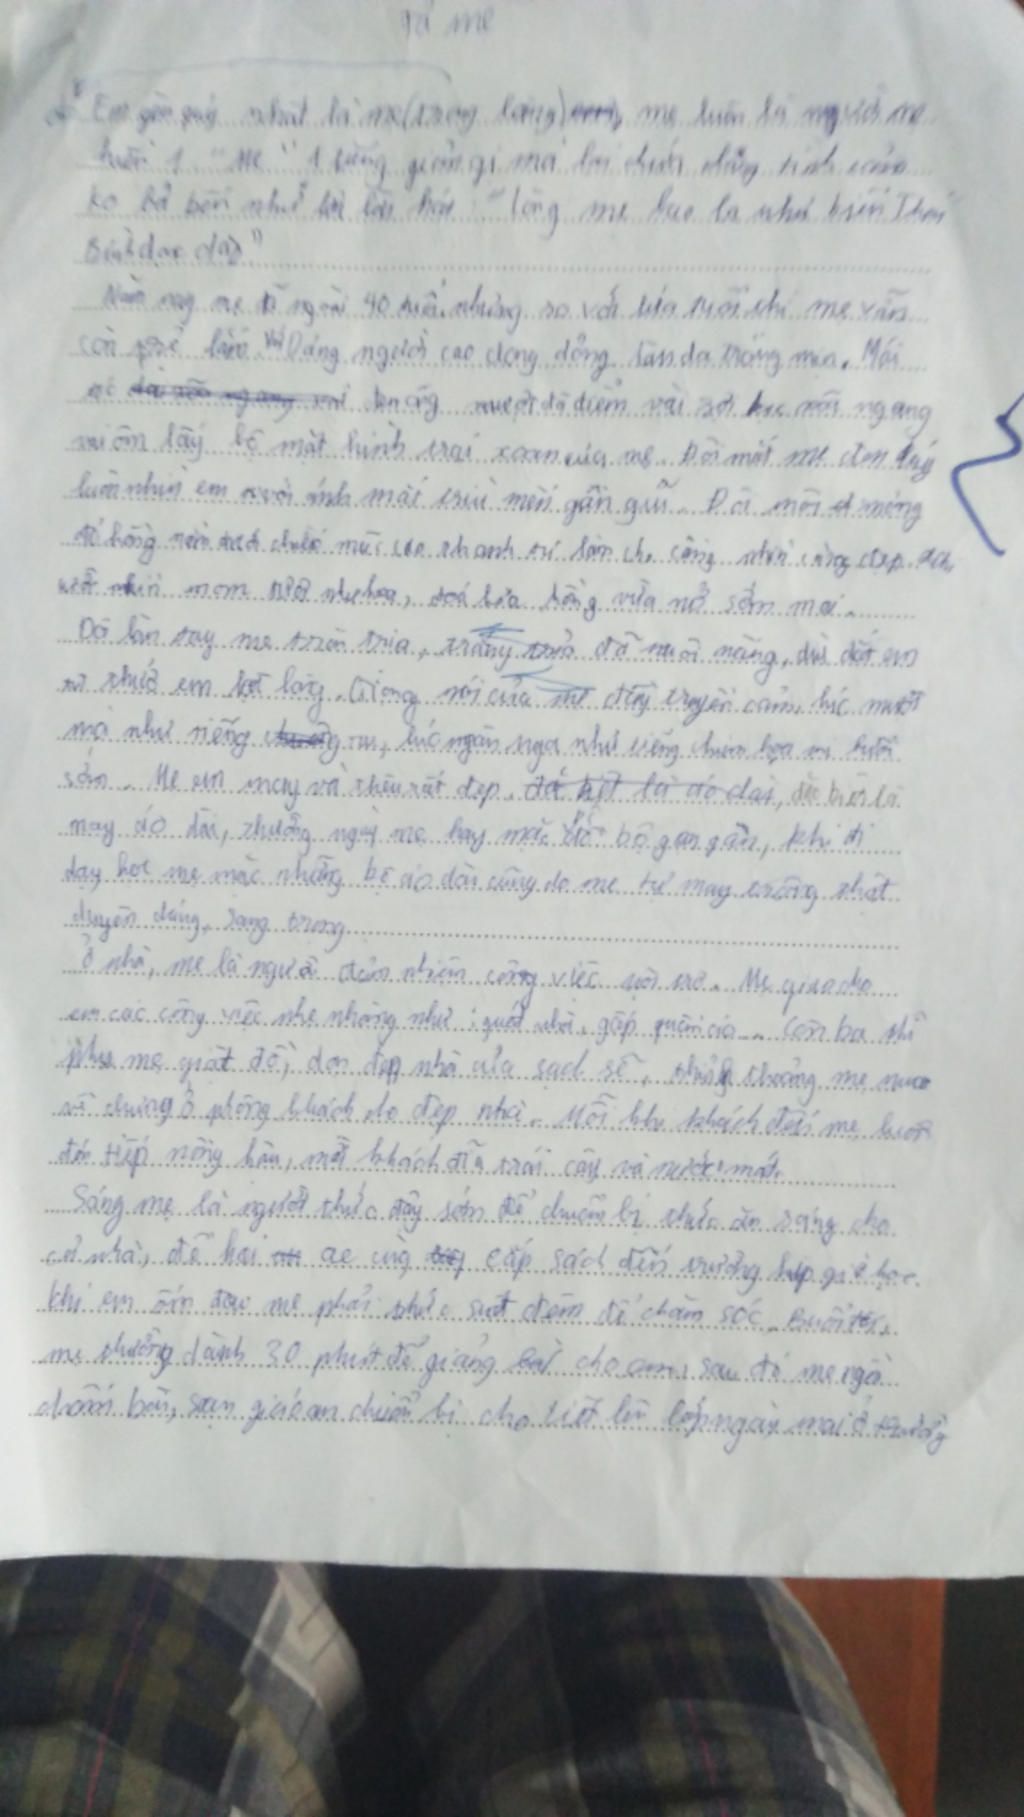 tả mẹ
Em yêu quý nhất là mẹ (trong lòng), mẹ luôn là người mẹ
1 "Mẹ" 1 tiếng giản gị mà lại chứa tình cảm
ko bờ bến như lời bài hát "lòng mẹ bao la như biển Thái
Bình dạt dào"
Năm nay mẹ đã ngoài 40 tuổi, nhưng so với lứa tuổi thì mẹ vẫn
còn trẻ lắm. Với Dáng người cao dong dỏng, làn da trắng mịn. Mái
tóc đen óng mượt đã điểm vài sợi ngang
vai ôm lấy bộ mặt hình trái xoan của mẹ. Đôi mắt mẹ đen láy
luôn nhìn em với ánh mắt trìu mến gần gũi. Đôi môi mỏng
đỏ hồng thanh tú làm cho càng nhìn càng đẹp.
như hoa, đoá hoa hồng vừa nở sớm mai.
Đôi bàn tay mẹ tròn trịa, trắng đã nuôi nấng, dìu dắt em
từ thuở em lọt lòng. Giọng nói của mẹ đầy truyền cảm, lúc mượt
mà như tiếng ru, lúc ngân nga như tiếng chim họa mi buổi
sớm. Mẹ em may và thêu rất đẹp, đặc biệt là áo dài, đặc biệt là
may áo dài, thường ngày mẹ hay mặc đồ bộ gọn gàn, khi đi
dạy học mẹ mặc những bộ áo dài cũng do mẹ tự may trông thật
duyên dáng, sang trọng
Ở nhà, mẹ là người đảm nhiệm công việc nội trợ. Mẹ giao cho
em các công việc nhẹ nhàng như: quét nhà, gấp quần áo... Còn ba thì
phụ mẹ giặt đồ, dọn dẹp nhà cửa sạch sẽ, thỉnh thoảng mẹ mua
về chưng ở phòng khách cho đẹp nhà. Mỗi khi khách đến mẹ luôn
đón tiếp nồng hậu, mời khách đĩa trái cây và nước mát.
Sáng mẹ là người thức dậy sớm để chuẩn bị thức ăn sáng cho
cả nhà, để hai ae cùng cắp sách đến trường kịp giờ học.
khi em ốm đau mẹ phải thức suốt đêm để chăm sóc. Buổi tối,
mẹ thường dành 30 phút để giảng bài cho em, sau đó mẹ ngồi
chấm bài, soạn giáo án chuẩn bị cho tiết lên lớp ngày mai ở trường